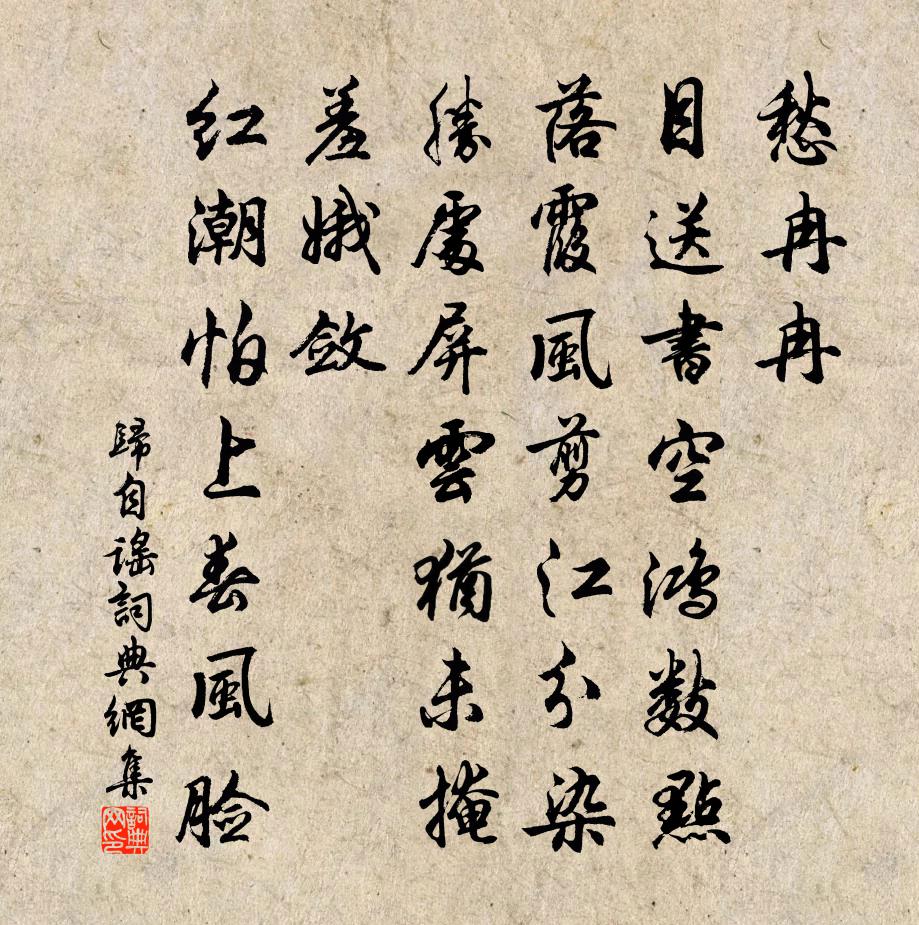 愁冉冉
目送書空鴻數點
落霞風剪江分染
勝處屏雲猶未掩
羞娥斂
红潮怕上春風脸
歸自謠詞典網集
詞典网印